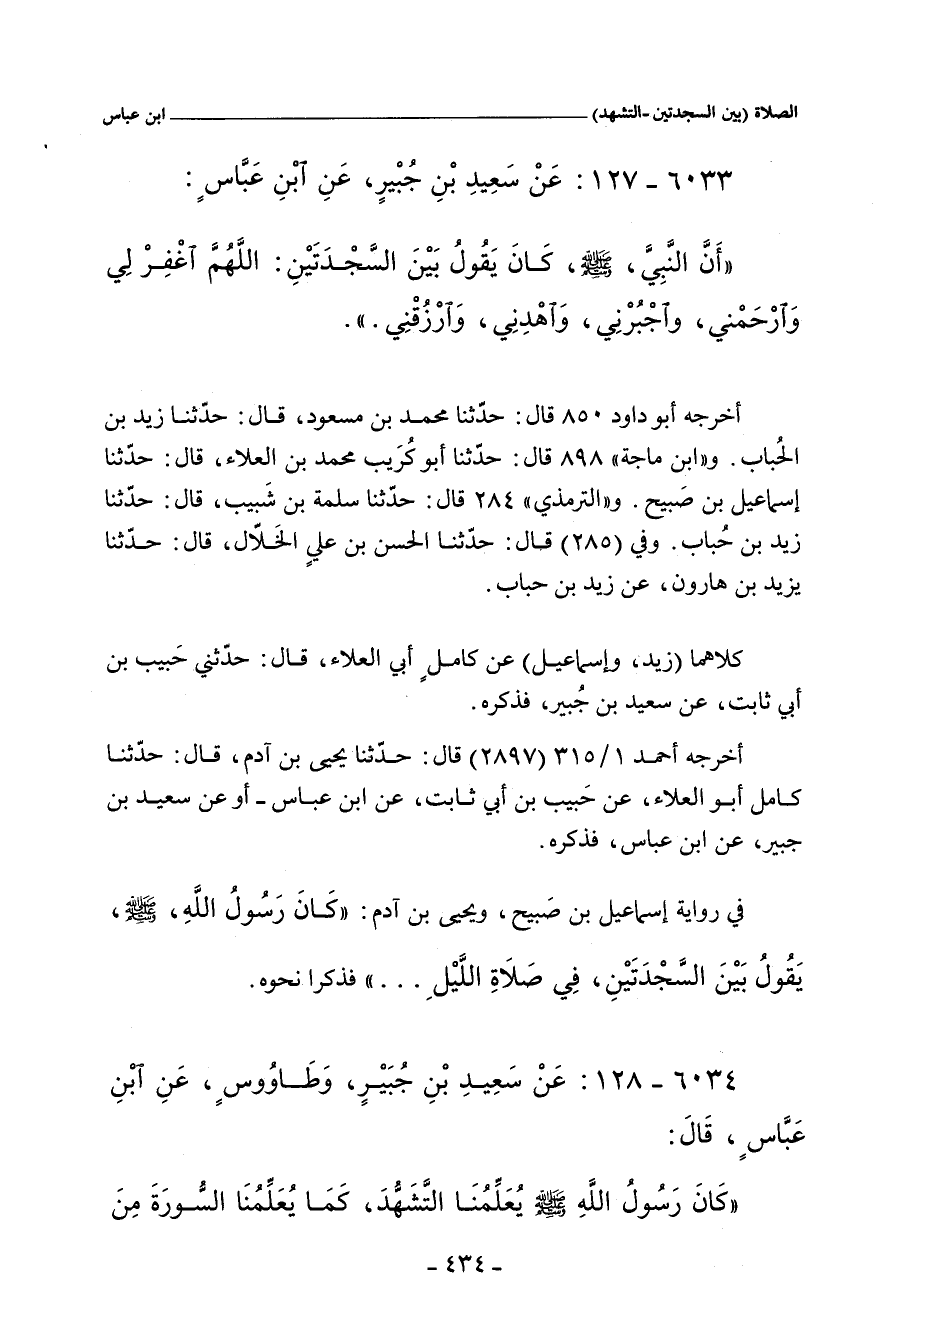 الصلاة (بين السجدتين - التشهد) ابن عباس
٦٠٣٣ - ١٢٧ : عَنْ سَعِيدِ بْنِ جُبَيْرٍ، عَنِ ٱبْنِ عَبَّاسٍ :
«أَنَّ النَّبِيَّ، ﷺ، كَانَ يَقُولُ بَيْنَ السَّجْدَتَيْنِ: اللَّهُمَّ ٱغْفِرْ لِي
وَٱرْحَمْنِي، وٱجْبُرْنِي، وَٱهْدِنِي، وَٱرْزُقْنِي.».
أخرجه أبو داود ٨٥٠ قال: حدّثنا محمد بن مسعود، قال: حدّثنا زيد بن
الحُباب. و«ابن ماجة» ٨٩٨ قال: حدّثنا أبو كُرَيب محمد بن العلاء، قال: حدّثنا
إسماعيل بن صَبيح. و«الترمذي» ٢٨٤ قال: حدّثنا سلمة بن شَبيب، قال: حدّثنا
زيد بن حُباب. وفي (٢٨٥) قال: حدّثنا الحسن بن عليٍ الخَلّال، قال: حدّثنا
يزيد بن هارون، عن زيد بن حباب.
كلاهما (زيد، وإسماعيل) عن كاملٍ أبي العلاء، قال: حدّثني حَبيب بن
أبي ثابت، عن سعيد بن جُبير، فذكره.
أخرجه أحمد ٣١٥/١ (٢٨٩٧) قال: حدّثنا يحيى بن آدم، قال: حدّثنا
كامل أبو العلاء، عن حَبيب بن أبي ثابت، عن ابن عباس - أو عن سعيد بن
جبير، عن ابن عباس، فذكره.
في رواية إسماعيل بن صَبيح، ويحيى بن آدم: «كَانَ رَسُولُ اللَّهِ، ﷺ،
يَقُولُ بَيْنَ السَّجْدَتَيْنِ، فِي صَلَاةِ اللَّيْلِ...» فذكرا نحوه.
٦٠٣٤ - ١٢٨ : عَنْ سَعِيدِ بْنِ جُبَيْرٍ، وَطَاوُوسٍ، عَنِ ٱبْنِ
عَبَّاسٍ، قَالَ:
«كَانَ رَسُولُ اللَّهِ ﷺ يُعَلِّمُنَا التَّشَهُّدَ، كَمَا يُعَلِّمُنَا السُّورَةَ مِنَ
- ٤٣٤ -